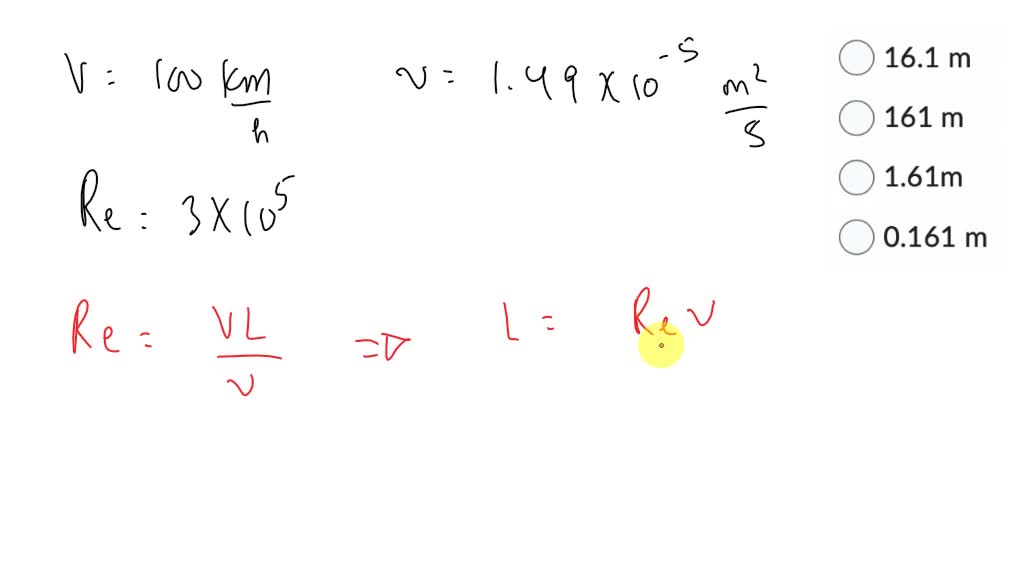 V = 100 km/h
ν = 1.49 × 10⁻⁵ m²/s
Re = 3 × 10⁵
Re = VL/ν ⇒ L = Re ν
16.1 m
161 m
1.61m
0.161 m